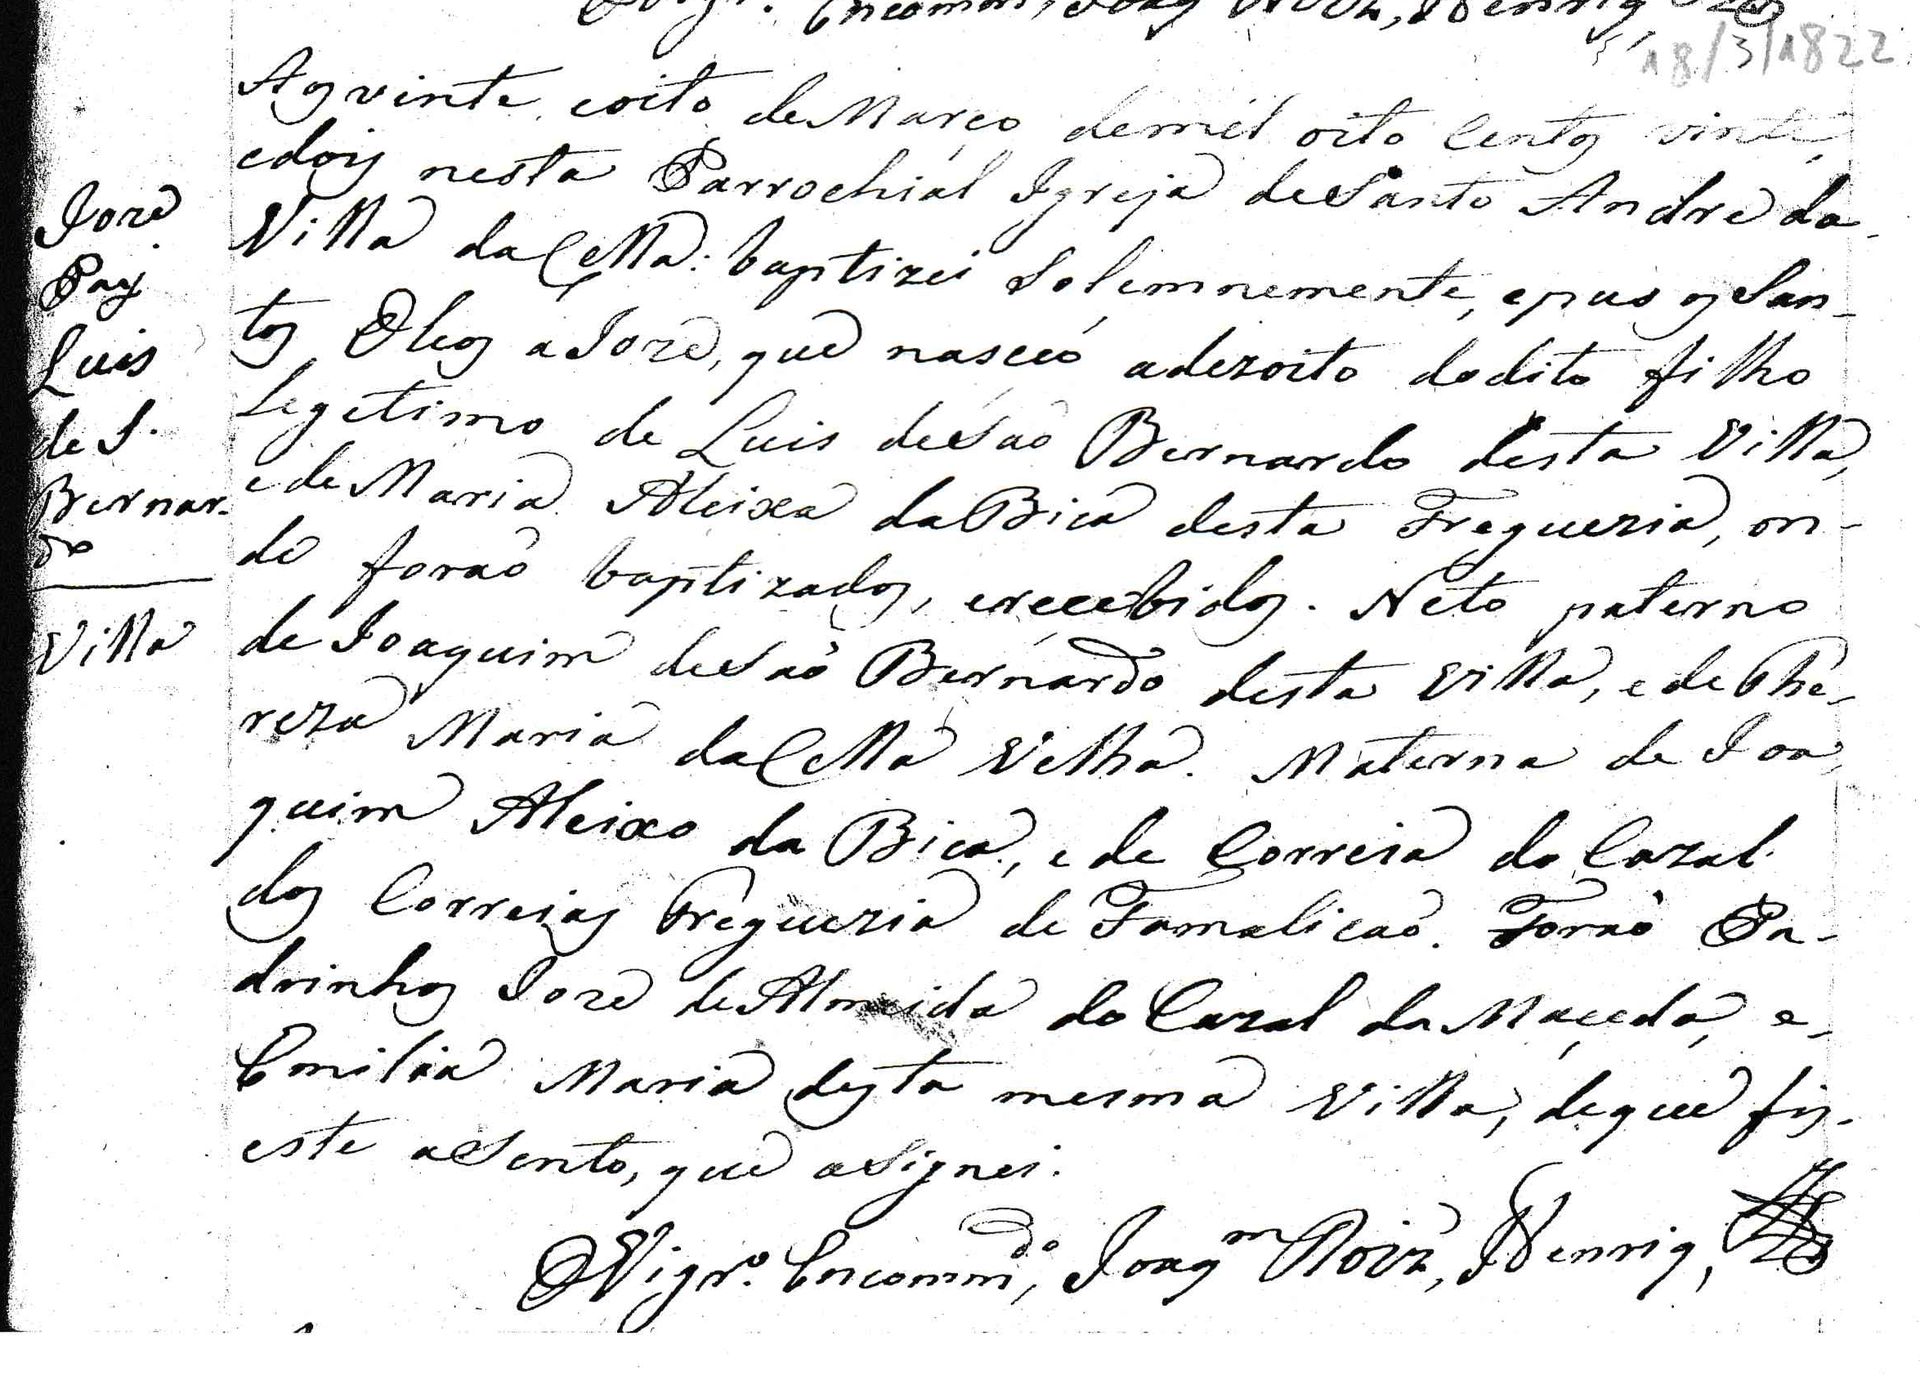 Vigr.º Encomm.do, Joaq.m Roiz, Henriq,
18/3/1822
Aos vinte, eoito, de Março demil oito Centos vinte,
edois nesta Parrochial Igreja deSanto Andre da
Villa daCella: baptizei Solemnemente, epus os San-
tos Oleos a Joze, que nasceo adezoito dodito filho
Legetimo de Luis deSaõ Bernardo desta Villa,
ede Maria Aleixa daBica desta Freguezia, on-
de foraõ baptizados, erecebidos. Neto paterno
de Joaquim deSaõ Bernardo desta Villa, e de The-
reza Maria daCella Velha. Materna de Joa,
quim Aleixo da Bica, e de Correia do Cazal
dos Correias Freguezia de Famalicaõ. Foraõ Pa-
drinhos Joze de Almeida do Cazal da Maceda, e,
Emilia Maria desta mesma Villa, deque fis.
este aSento, que aSignei.
OVigr.º Encomm.do, Joaq.m Roiz, Henriq,
Joze
Pay
Luis
de S.
Bernar-
do
Villa